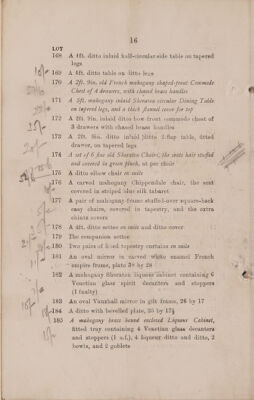 16
LOT
168 A 4ft. ditto inlaid half-circular side table on tapered
legs
169 A 4ft. ditto table on ditto legs
170 A 2ft. 9in. old French mahogany shaped-front Commode
Chest of 4 drawers, with chased brass handles
171 A 5ft. mahogany inlaid Sheraton circular Dining Table
on tapered legs, and a thick flannel cover for top
172 A 2ft. 9in. inlaid ditto bow front commode chest of
3 drawers with chased brass handles
173 A 2ft. 8in. ditto inlaid ditto 2-flap table, fitted
drawer, on tapered legs
174 A set of 6 fine old Sheraton Chairs, the seats hair stuffed
and covered in green plush, at per chair
175 A ditto elbow chair en suite
176 A carved mahogany Chippendale chair, the seat
covered in striped blue silk tabaret
177 A pair of mahogany-frame stuffed-over square-back
easy chairs, covered in tapestry, and the extra
chintz covers
178 A 4ft. ditto settee en suite and ditto cover
179 The companion settee
180 Two pairs of lined tapestry curtains en suite
181 An oval mirror in carved white enamel French
empire frame, plate 38 by 28
182 A mahogany Sheraton liqueur cabinet containing 6
Venetian glass spirit decanters and stoppers
(1 faulty)
183 An oval Vauxhall mirror in gilt frame, 26 by 17
184 A ditto with bevelled plate, 25 by 17½
185 A mahogany brass bound enclosed Liqueur Cabinet,
fitted tray containing 4 Venetian glass decanters
and stoppers (1 a.f.), 4 liqueur ditto and ditto, 2
bowls, and 2 goblets